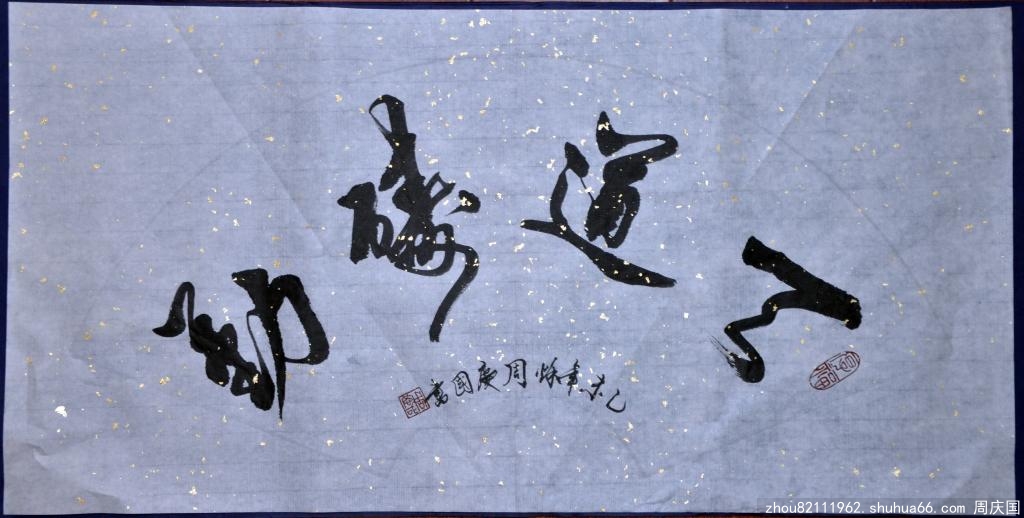 天道酬勤
乙未年秋周庆国书
zhou82111962. shuhua66. com 周庆国